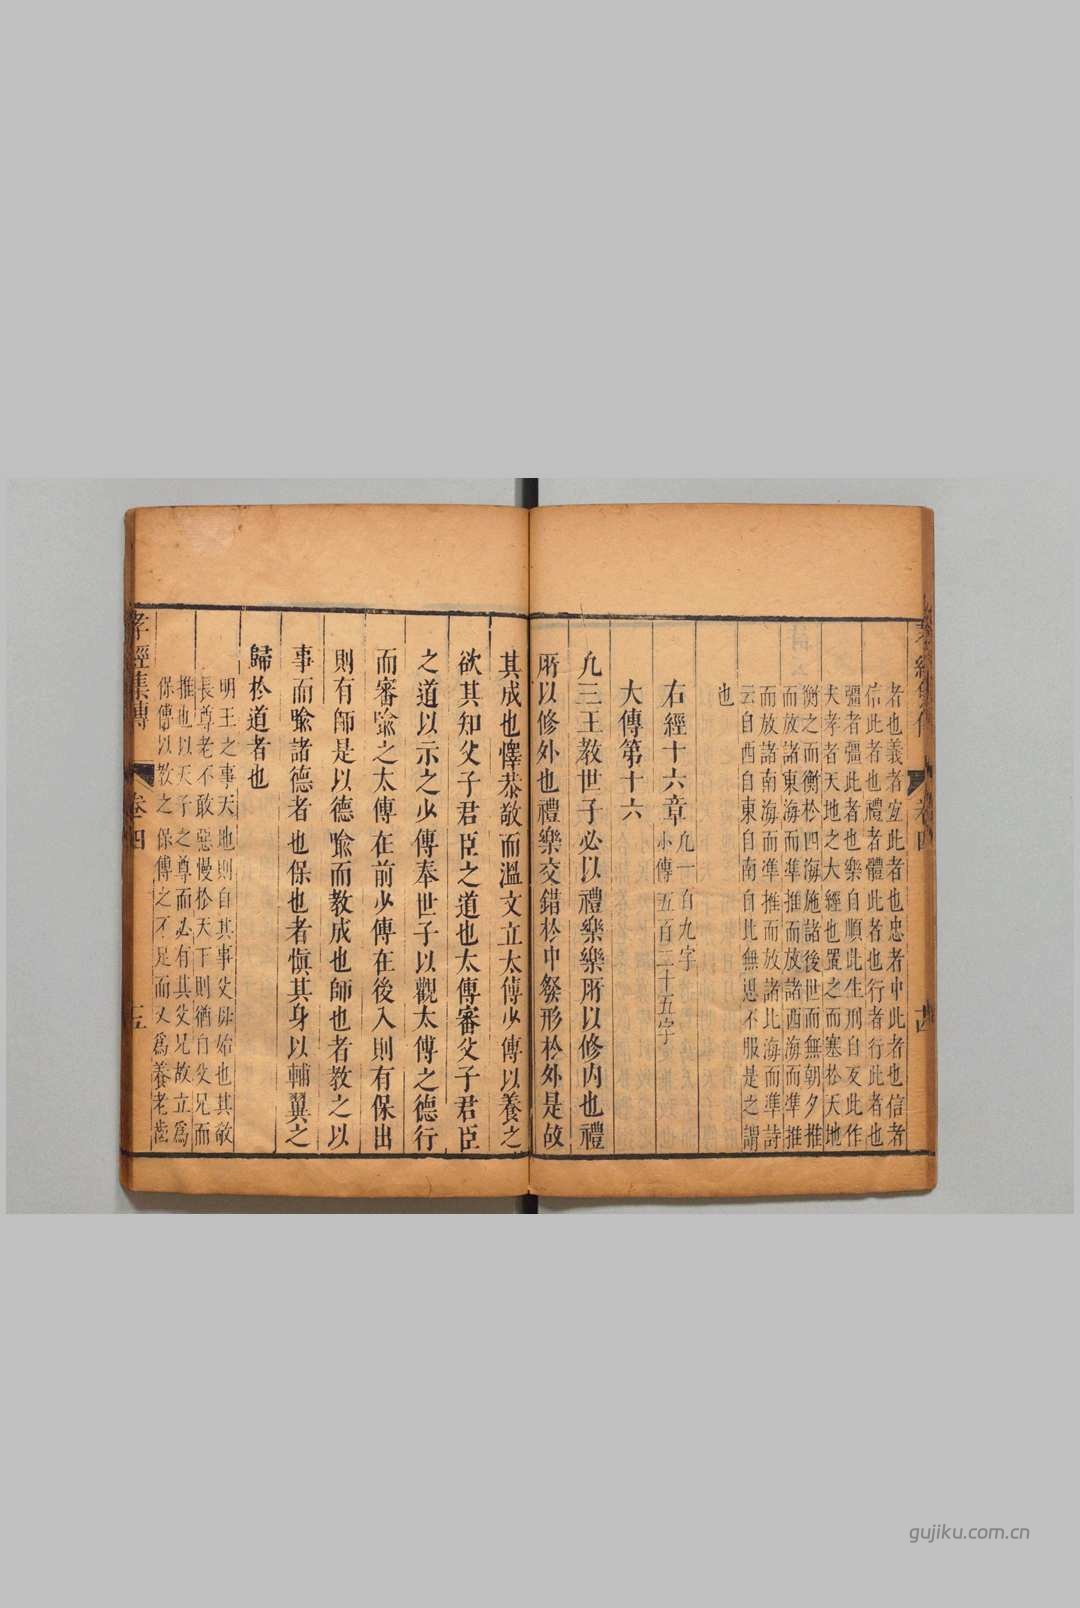 孝經集傳
卷四
十四
者也義者宜此者也忠者中此者也信者
信此者也禮者體此者也行者行此者也
彊者彊此者也樂自順此生刑自反此作
夫孝者天地之大經也置之而塞於天地
衡之而衡於四海施諸後世而無朝夕推
而放諸東海而準推而放諸西海而準推
而放諸南海而準推而放諸北海而準詩
云自西自東自南自北無思不服是之謂
也
右經十六章
凡一百九字
小傳五百三十五字
大傳第十六
凡三王教世子必以禮樂樂所以修內也禮
所以修外也禮樂交錯於中發形於外是故
其成也懌恭敬而溫文立太傅少傅以養之
欲其知父子君臣之道也太傅審父子君臣
之道以示之少傅奉世子以觀太傅之德行
而審喩之太傅在前少傅在後入則有保出
則有師是以德喩而教成也師也者教之以
事而喩諸德者也保也者愼其身以輔翼之
歸於道者也
明王之事天地則自其事父母始也其敬
長尊老不敢惡慢於天下則猶自父兄而
推也以天子之尊而必有其父兄故立爲
保傅以教之保傅之不足而又爲養老齒
孝經集傳
卷四
十五
gujiku.com.cn